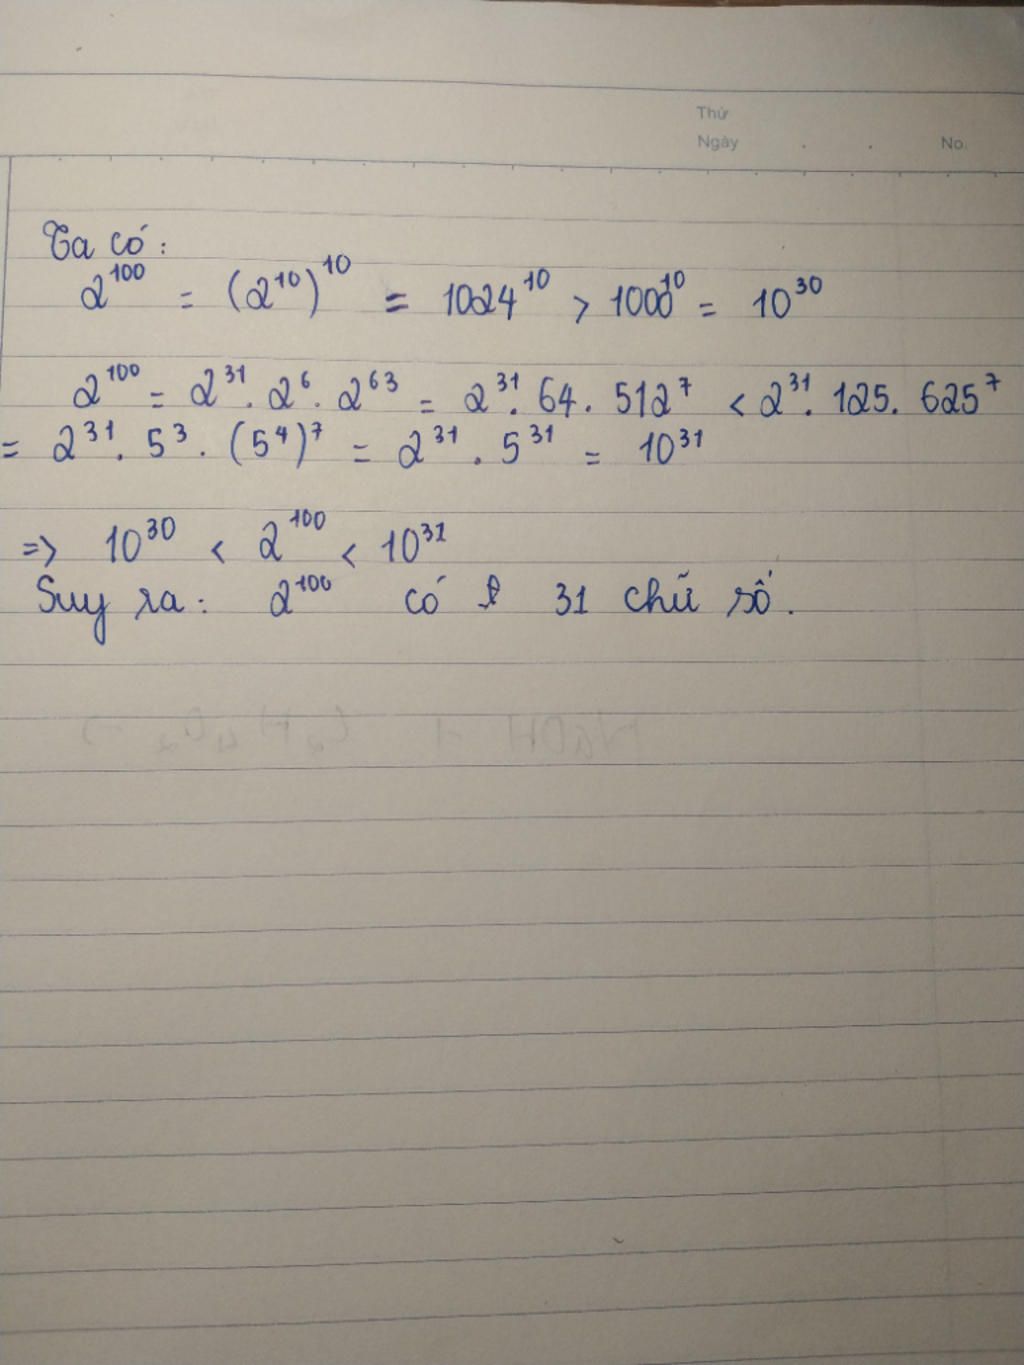 Thứ
Ngày . . No.
Ta có:
2^100 = (2^10)^10 = 1024^10 > 1000^10 = 10^30
2^100 = 2^31 . 2^6 . 2^63 = 2^31 . 64 . 512^7 < 2^31 . 125 . 625^7
= 2^31 . 5^3 . (5^4)^7 = 2^31 . 5^31 = 10^31
=> 10^30 < 2^100 < 10^31
Suy ra: 2^100 có 31 chữ số.
NaOH + C2H4O2 →